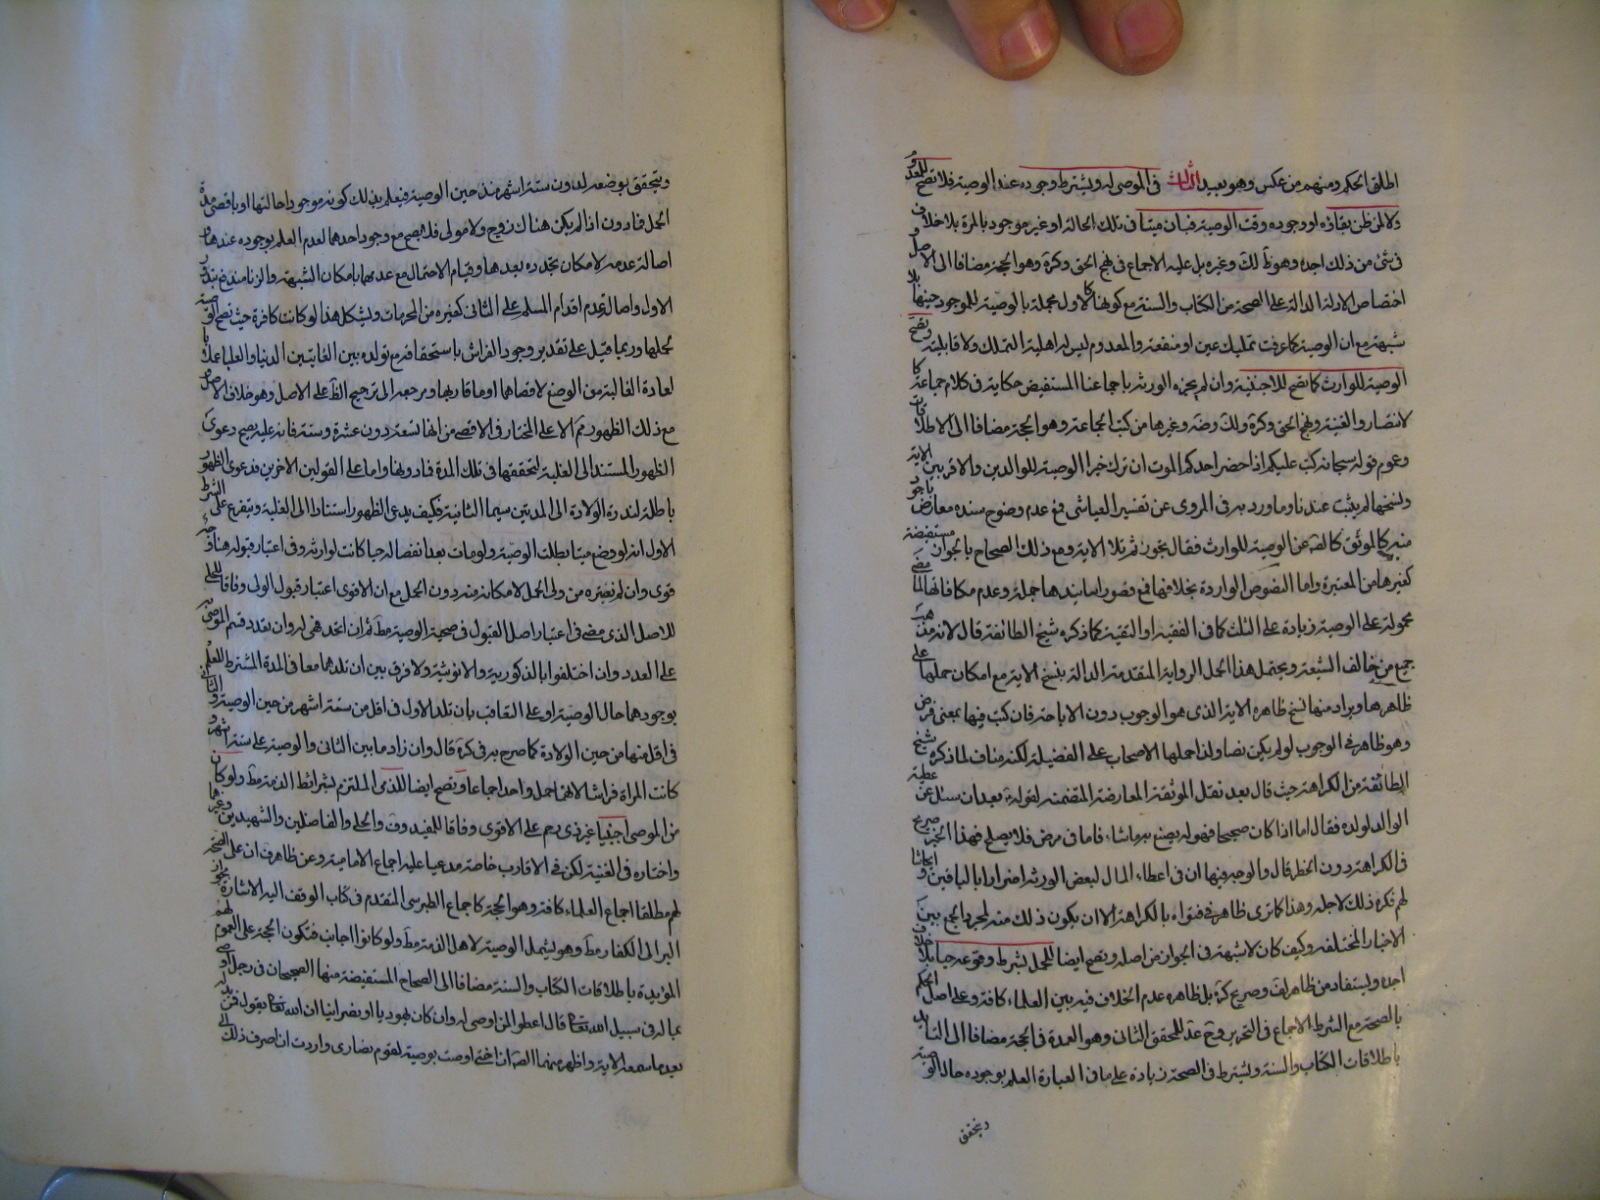 اطلق الحكم ومنهم من عكس وهو بعيد الثالث في الموصى له ويشترط وجوده عند الوصية فلا تصح للمعدوم
ولا لمن ظن بقاؤه او وجوده وقت الوصية فبان ميتا في تلك الحالة او غير موجود بالمرة بلا خلاف
في شئ من ذلك اجده وهو ظ لك وغيره بل عليه الاجماع في نهج الحق وكرة وهو الحجة مضافا الى الاصل
اختصاص الادلة الدالة على الصحة من الكتاب والسنة مع كونها كالاول مجملة بالوصية للموجود حينها بلا
شبهة مع ان الوصية كما عرفت تمليك عين او منفعة والمعدوم ليس له اهلية التملك ولا قابليته وتصح
الوصية للوارث كما تصح للاجنبي وان لم يجزه الورثة باجماعنا المستفيض حكايته في كلام جماعة كا
لانتصار والغنية ونهج الحق وكرة ولك وضه وغيرها من كتب الجماعة وهو الحجة مضافا الى الاطلاقات
وعموم قوله سبحانه كتب عليكم اذا حضر احدكم الموت ان ترك خيرا الوصية للوالدين والاقربين الاية
ونسخها لم يثبت عندنا وما ورد به في المروى عن تفسير العياشي فمع عدم وضوح سنده معارض باجود
منه كالموثق كالصه عن الوصية للوارث فقال يجوز ثم تلا الاية ومع ذلك الصحاح بالجواز مستفيضة
كغيرها من المعتبرة واما النصوص الواردة بخلافها فمع قصور اسانيدها جملة وعدم مكافاتها لما مضى
محمولة على الوصية زيادة على الثلث كما في الفقيه او التقية كما ذكره شيخ الطائفة قال لانه مذهب
جميع من خالف الشيعة ويحتمل هذا الحمل الرواية المتقدمة الدالة بنسخ الاية مع امكان حملها على
ظاهرها ويراد منها نسخ ظاهره الاية الذى هو الوجوب دون الاباحة فان كتب فيها بمعنى فرض
وهو ظاهر في الوجوب لو لم يكن نصا ولذا حملها الاصحاب على الفضيلة لكنه مناف لما ذكره شيخ
الطائفة من الكراهة حيث قال بعد نقل الموثقة المعارضة المتضمنة لقوله بعد ان سئل عن عطية
الوالد لولده فقال اما اذا كان صحيحا فهو له يصنع به ما شاء فاما في مرض فلا يصلح فهذا الخبر صريح
في الكراهة دون الحظر قال والوجه فيها ان في اعطاء المال لبعض الورثة اضرارا بالباقين و
لهم فكره ذلك لاجله وهذا كما ترى ظاهر في فتواه بالكراهة الا ان يكون ذلك منه لمجرد الجمع بين
الاخبار المختلفة وكيف كان لا شبهة في الجواز من اصله وتصح ايضا للحمل بشرط وقوعه حيا بلا خلاف
اجده ويستفاد من ظاهر لف وصريح كرة بل ظاهره عدم الخلاف فيه بين العلماء كافة وعلى اصل الحكم
بالصحة مع الشرط الاجماع في التحرير وشرح عد للمحقق الثاني وهو العمدة في الحجة مضافا الى التأييد
باطلاقات الكتاب والسنة ويشترط في الصحة زيادة على ما في العبارة العلم بوجوده حال الوصية
ويتحقق
ويتحقق بوضعه لدون ستة اشهر منذ حين الوصية فيعلم بذلك كونه موجودا حالتها او باقصى مدة
الحمل فما دون اذا لم يكن هناك زوج ولا مولى فلا يصح مع وجود احدهما لعدم العلم بوجوده عندها
اصالة عدمه لامكان تجدده بعدها وقيام الاحتمال مع عدمهما بامكان الشبهة والزنا مندفع بندور
الاول واصالة عدم اقدام المسلم على الثاني كغيره من المحرمات ويشكل هذا لو كانت كافرة حيث تصح الوصية
لحملها وربما قيل على تقدير وجود الفراش باستحقاقه مع تولده بين الغايتين الدنيا والعليا عملا با
لعادة الغالبة من الوضع لاقصاهما او ما قاربها ومرجعه الى ترجيح الظ على الاصل وهو خلاف الاصل
مع ذلك الظهور لم يتم الا على المختار في الاقصى من انها تسعة دون عشرة وسنة فانه عليه يصح دعوى
الظهور المستند الى الغلبة لتحققها في تلك المدة فما دونها واما على القولين الاخرين فدعوى الظهور
باطلة لندرة الولادة الى المدتين سيما الثانية فكيف يدعى الظهور استنادا الى الغلبة ويتفرع على الشرط
الاول انه لو وضع ميتا بطلت الوصية ولو مات بعد انفصاله حيا كانت لوارثه وفى اعتبار قبوله هنا وجه
قوى وان لم نعتبره من ولى الحمل لامكانه منه دون الحمل مع ان الاقوى اعتبار قبول الولى وفاقا للحلى
للاصل الذى مضى في اعتبار اصل القبول في صحة الوصية مط ثم ان اتحد فهى له وان تعدد قسم الموصى به
على العدد وان اختلفوا بالذكورية والانوثية ولا فرق بين ان تلدهما معا في المدة المشترط للعلم
بوجودهما حال الوصية او على التعاقب بان تلد الاول في اقل من ستة اشهر من حين الوصية والثاني
في اقل منها من حين الولادة كما صرح به في كرة قال وان زاد ما بين الثاني والوصية على ستة اشهر و
كانت المراة فراشا لانهما حمل واحد اجماعا وتصح ايضا للذمى الملتزم بشرائط الذمة مط ولو كان
من الموصى اجنبيا غير ذى رحم على الاقوى وفاقا للمفيد وف والحلى والفاضلين والشهيدين وغيرها
واختاره في الغنية لكن في الاقارب خاصة مدعيا عليه اجماع الامامية وعن ظاهر ف ان على الصحة
لهم مطلقا اجماع العلماء كافة وهو الحجة كاجماع الطبرسى المتقدم في كتاب الوقف اليه الاشارة بجواز
البر الى الكفار مط وهو يشمل الوصية لاهل الذمة مط ولو كانوا اجانب فتكون الحجة على العموم لهم
المؤيدة باطلاقات الكتاب والسنة مضافا الى الصحاح المستفيضة منها الصحيحان في رجل اوصى
بماله في سبيل الله تعالى قال اعطوا لمن اوصى له وان كان يهوديا او نصرانيا ان الله تعالى يقول فمن بدله
بعد ما سمعه الاية واظهر منهما الصه ان اختى اوصت بوصية لقوم نصارى واردت ان اصرف ذلك الى